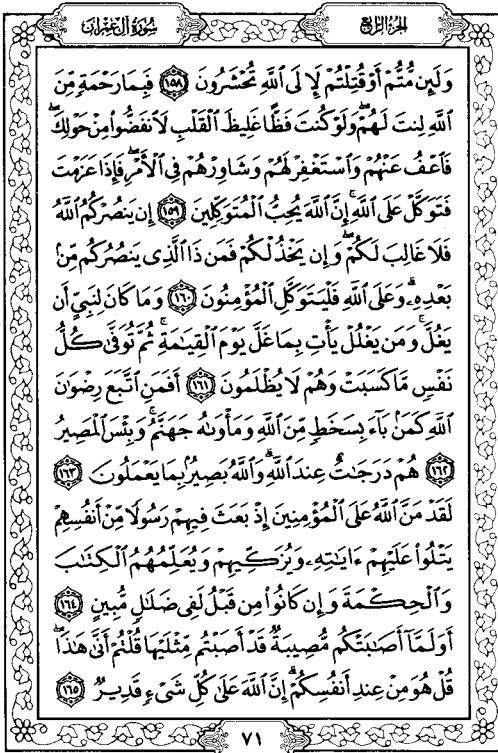 الجزء الرابع سورة آل عمران
وَلَئِن مُّتُّمْ أَوْ قُتِلْتُمْ لَإِلَى ٱللَّهِ تُحْشَرُونَ ١٥٨ فَبِمَا رَحْمَةٍ مِّنَ
ٱللَّهِ لِنتَ لَهُمْ ۖ وَلَوْ كُنتَ فَظًّا غَلِيظَ ٱلْقَلْبِ لَٱنفَضُّوا۟ مِنْ حَوْلِكَ ۖ
فَٱعْفُ عَنْهُمْ وَٱسْتَغْفِرْ لَهُمْ وَشَاوِرْهُمْ فِى ٱلْأَمْرِ ۖ فَإِذَا عَزَمْتَ
فَتَوَكَّلْ عَلَى ٱللَّهِ ۚ إِنَّ ٱللَّهَ يُحِبُّ ٱلْمُتَوَكِّلِينَ ١٥٩ إِن يَنصُرْكُمُ ٱللَّهُ
فَلَا غَالِبَ لَكُمْ ۖ وَإِن يَخْذُلْكُمْ فَمَن ذَا ٱلَّذِى يَنصُرُكُم مِّنۢ
بَعْدِهِۦ ۗ وَعَلَى ٱللَّهِ فَلْيَتَوَكَّلِ ٱلْمُؤْمِنُونَ ١٦٠ وَمَا كَانَ لِنَبِىٍّ أَن
يَغُلَّ ۚ وَمَن يَغْلُلْ يَأْتِ بِمَا غَلَّ يَوْمَ ٱلْقِيَـٰمَةِ ۚ ثُمَّ تُوَفَّىٰ كُلُّ
نَفْسٍ مَّا كَسَبَتْ وَهُمْ لَا يُظْلَمُونَ ١٦١ أَفَمَنِ ٱتَّبَعَ رِضْوَٰنَ
ٱللَّهِ كَمَنۢ بَآءَ بِسَخَطٍ مِّنَ ٱللَّهِ وَمَأْوَىٰهُ جَهَنَّمُ ۚ وَبِئْسَ ٱلْمَصِيرُ
١٦٢ هُمْ دَرَجَـٰتٌ عِندَ ٱللَّهِ ۗ وَٱللَّهُ بَصِيرٌۢ بِمَا يَعْمَلُونَ ١٦٣
لَقَدْ مَنَّ ٱللَّهُ عَلَى ٱلْمُؤْمِنِينَ إِذْ بَعَثَ فِيهِمْ رَسُولًا مِّنْ أَنفُسِهِمْ
يَتْلُوا۟ عَلَيْهِمْ ءَايَـٰتِهِۦ وَيُزَكِّيهِمْ وَيُعَلِّمُهُمُ ٱلْكِتَـٰبَ
وَٱلْحِكْمَةَ وَإِن كَانُوا۟ مِن قَبْلُ لَفِى ضَلَـٰلٍ مُّبِينٍ ١٦٤
أَوَلَمَّآ أَصَـٰبَتْكُم مُّصِيبَةٌ قَدْ أَصَبْتُم مِّثْلَيْهَا قُلْتُمْ أَنَّىٰ هَـٰذَا ۖ
قُلْ هُوَ مِنْ عِندِ أَنفُسِكُمْ ۗ إِنَّ ٱللَّهَ عَلَىٰ كُلِّ شَىْءٍ قَدِيرٌ ١٦٥
٧١